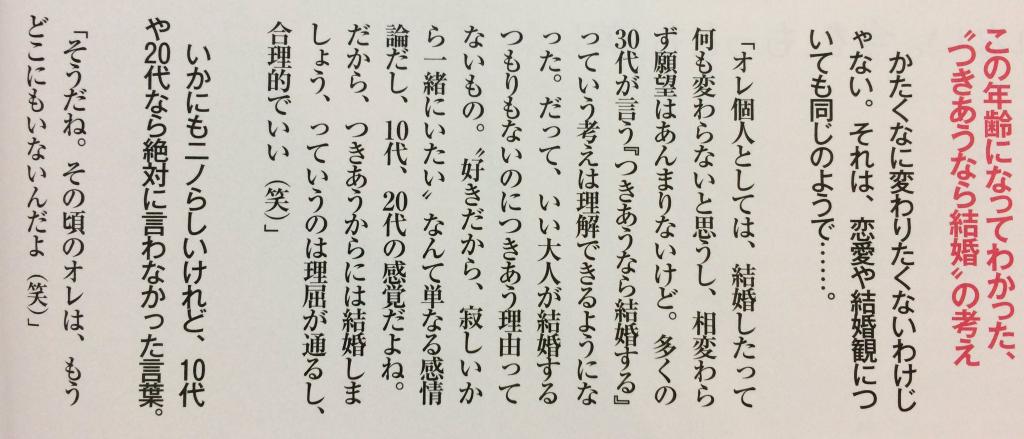 この年齢になってわかった、
〝つきあうなら結婚〟の考え
かたくなに変わりたくないわけじ
ゃない。それは、恋愛や結婚観につ
いても同じのようで……。
「オレ個人としては、結婚したって
何も変わらないと思うし、相変わら
ず願望はあんまりないけど。多くの
30代が言う『つきあうなら結婚する』
っていう考えは理解できるようにな
った。だって、いい大人が結婚する
つもりもないのにつきあう理由って
ないもの。〝好きだから、寂しいか
ら一緒にいたい〟なんて単なる感情
論だし、10代、20代の感覚だよね。
だから、つきあうからには結婚しま
しょう、っていうのは理屈が通るし、
合理的でいい(笑)」
いかにもニノらしいけれど、10代
や20代なら絶対に言わなかった言葉。
「そうだね。その頃のオレは、もう
どこにもいないんだよ(笑)」